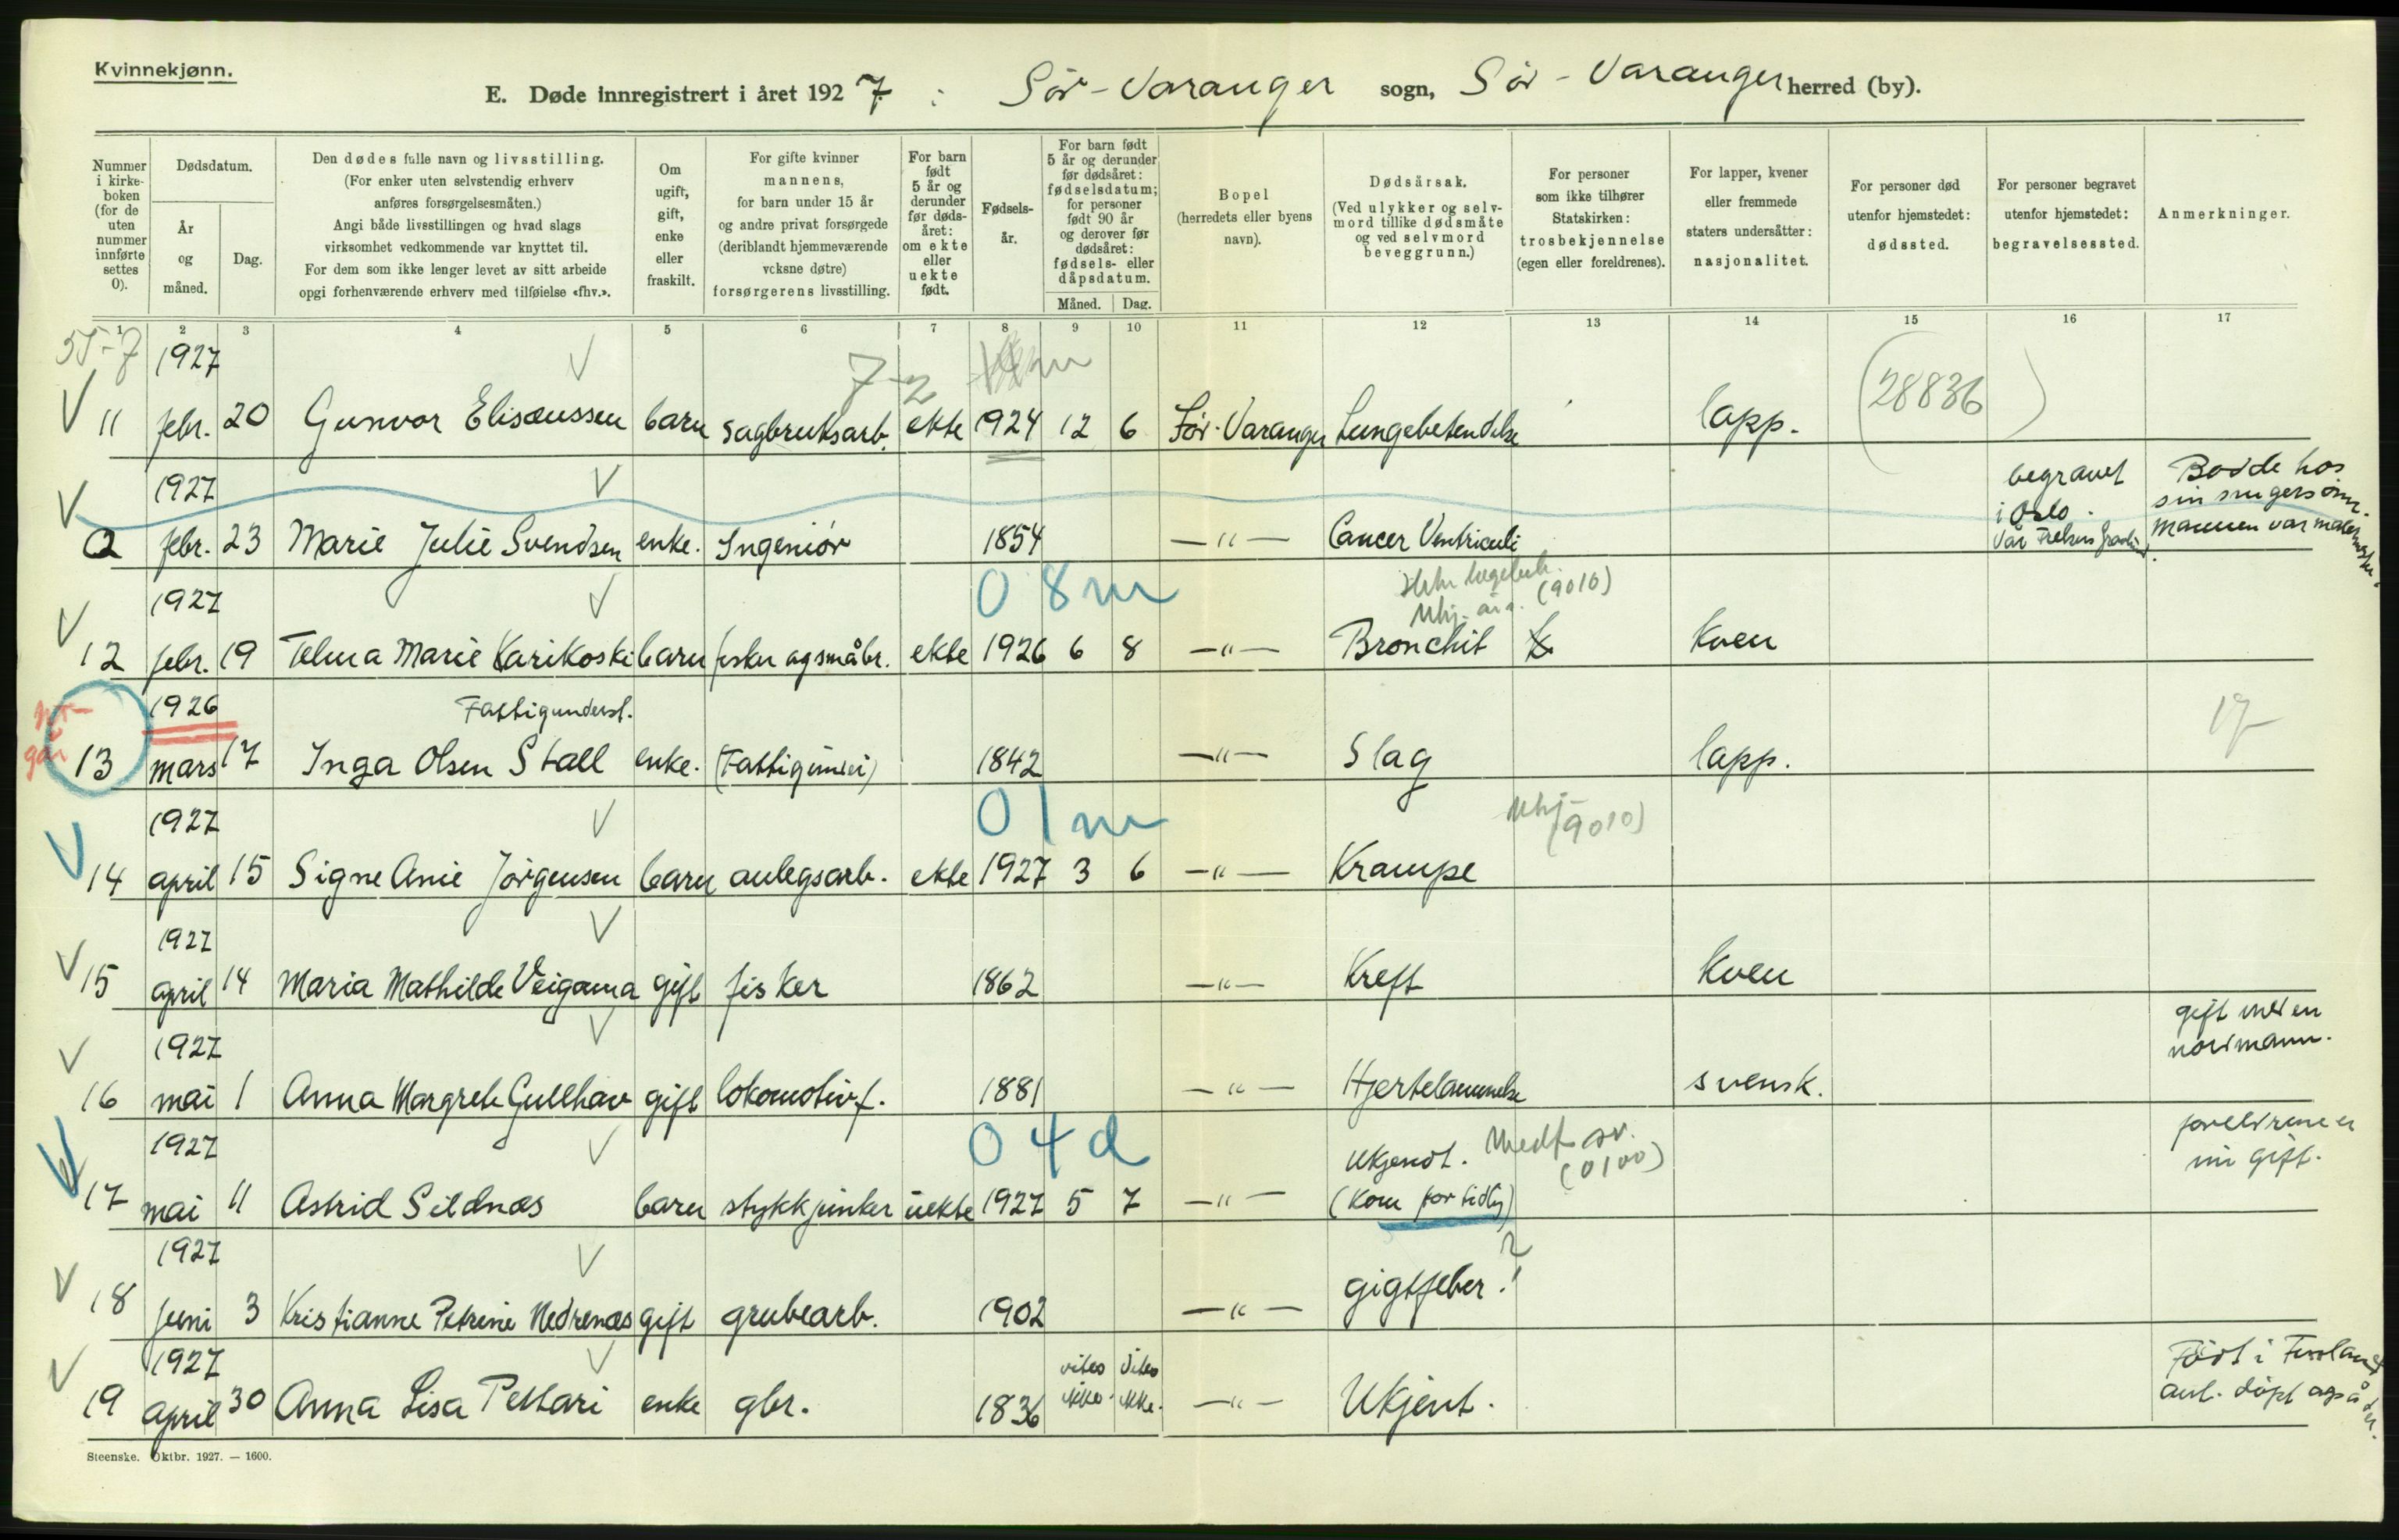 Kvinnekjønn.
E. Døde innregistrert i året 1927 : Sør-Varanger sogn, Sør-Varanger herred (by).
Nummer i kirkeboken (for de uten nummer innførte settes 0).
Dødsdatum.
År og måned.
Dag.
Den dødes fulle navn og livsstilling.
(For enker uten selvstendig erhverv
anføres forsørgelsesmåten.)
Angi både livsstillingen og hvad slags
virksomhet vedkommende var knyttet til.
For dem som ikke lenger levet av sitt arbeide
opgi forhenværende erhverv med tilføielse «fhv.».
Om ugift, gift, enke eller fraskilt.
For gifte kvinner
mannens,
for barn under 15 år
og andre privat forsørgede
(deriblandt hjemmeværende
voksne døtre)
forsørgerens livsstilling.
For barn født 5 år og derunder før dødsåret: om ekte eller uekte født.
Fødselsår.
For barn født
5 år og derunder
før dødsåret:
fødselsdatum;
for personer
født 90 år
og derover før
dødsåret:
fødsels- eller
dåpsdatum.
Måned. Dag.
Bopel
(herredets eller byens
navn).
Dødsårsak.
(Ved ulykker og selv-
mord tillike dødsmåte
og ved selvmord
beveggrunn.)
For personer
som ikke tilhører
Statskirken:
trosbekjennelse
(egen eller foreldrenes).
For lapper, kvener
eller fremmede
staters undersåtter:
nasjonalitet.
For personer død
utenfor hjemstedet:
dødssted.
For personer begravet
utenfor hjemstedet:
begravelsessted.
Anmerkninger.
1 2 3 4 5 6 7 8 9 10 11 12 13 14 15 16 17
55-7 1927 7-2
11 febr. 20 Gunvor Elisæussen barn sagbruksarb. ekte 1924 12 6 Sør-Varanger Lungebetendelse lapp. (28836)
1927 begravet Bodde hos
i Oslo. sin svigersønn.
0 febr. 23 Marie Julie Svendsen enke. Ingeniør 1854 —"— Cancer Ventriculi Vår Frelsers Mannen var
1927 0 8 m (9010)
12 febr. 19 Telma Marie Karikoski barn fisker og småbr. ekte 1926 6 8 —"— Bronchit Kven
1926 Fattigunderst. 17
utgår 13 mars 17 Inga Olsen Stall enke. 1842 —"— Slag lapp.
1927 0 1 m Uhj (9010)
14 april 15 Signe Anie Jørgensen barn anlegsarb. ekte 1927 3 6 —"— Krampe
1927
15 april 14 Maria Mathilde Veigama gift fisker 1862 —"— Kreft Kven
1927 gift med en
nordmann.
16 mai 1 Anna Margrete Gullhav gift lokomotivf. 1881 —"— Hjertelammelse svensk.
1927 0 4 d Ukjendt. Medf. sv. (0100) foreldrene er
ni gift.
17 mai 11 Astrid Sildnæs barn stykkjunker uekte 1927 5 7 —"— (Kom for tidlig)
1927
18 juni 3 Kristianne Petrine Nedrenæs gift grubearb. 1902 —"— gigtfeber ?!
1927 vites ikke. vites ikke. Født i Finland
ant. døpt også der.
19 april 30 Anna Lisa Pettari enke gbr. 1836 —"— Ukjent.
Steenske. Oktbr. 1927. — 1600.